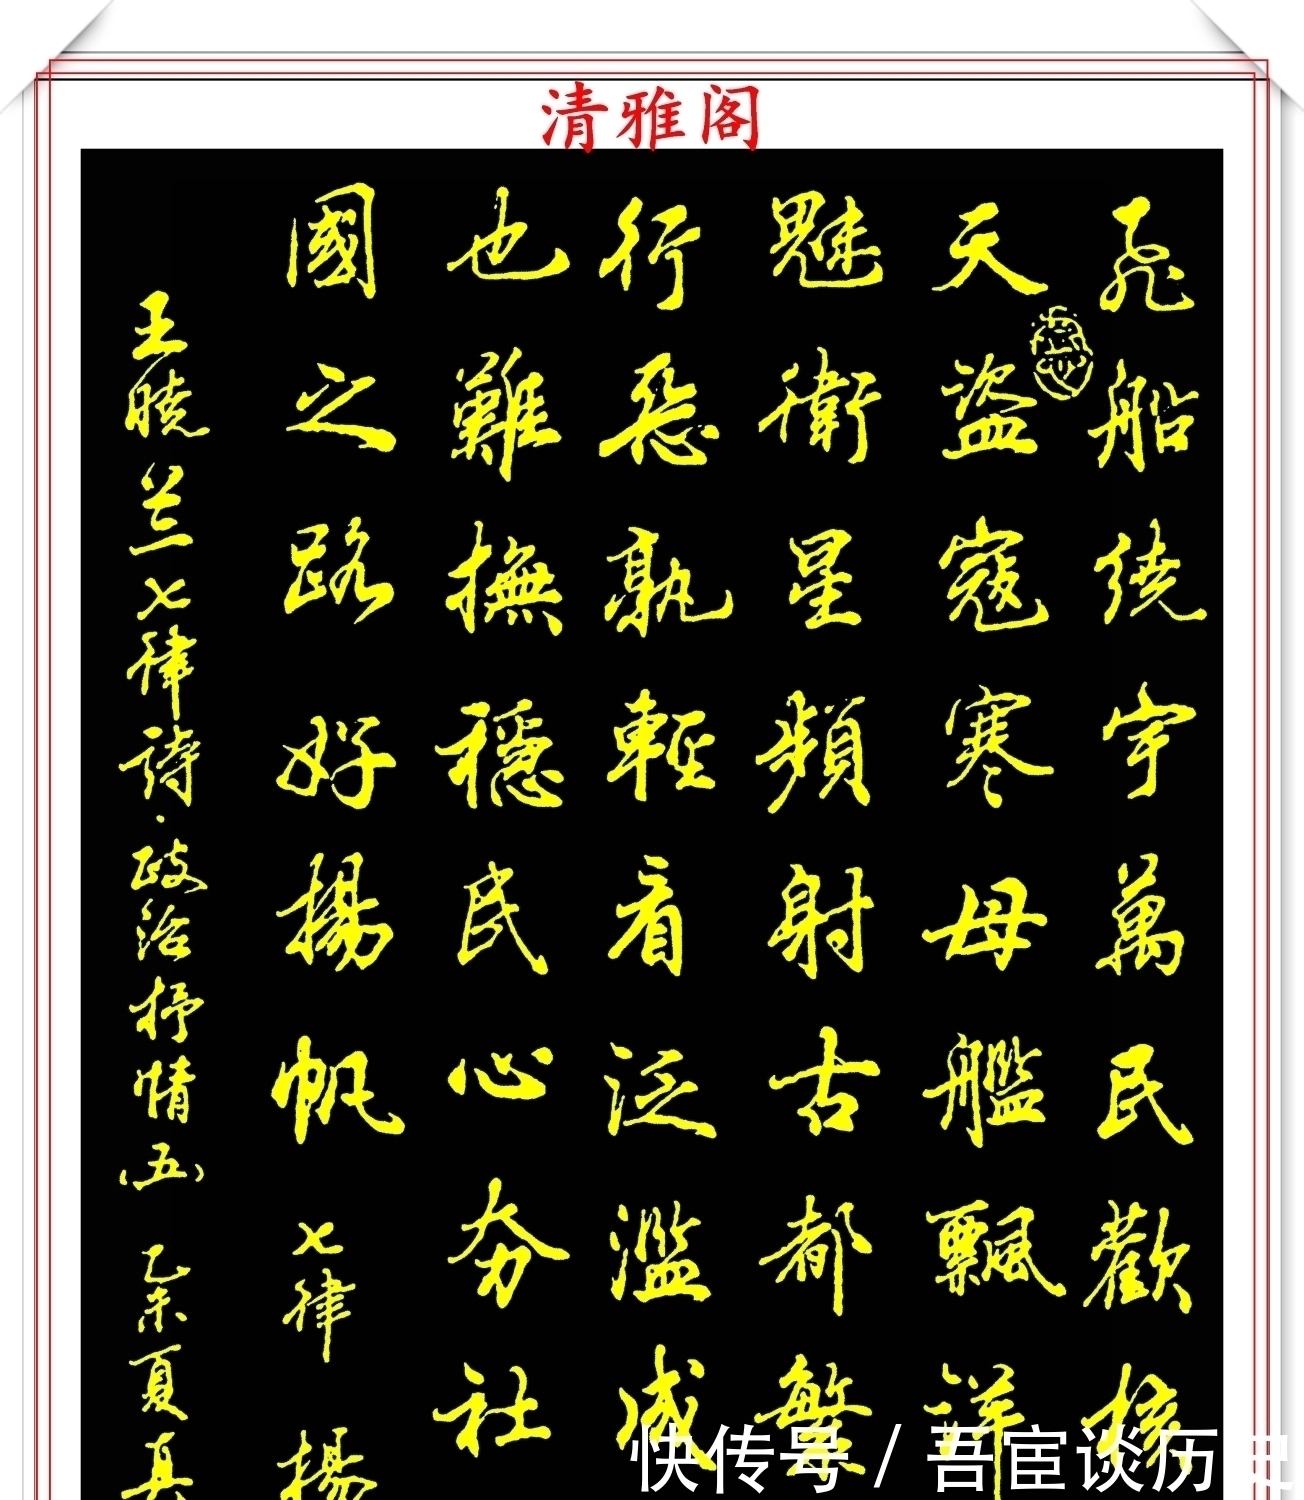 清雅阁
飛船绕宇萬民歡核
天盗寇寒母艦飄洋
魅衛星頻射古都繁
行惡孰輕看泛濫成
也難撫穩民心夯社
國之路好揚帆 七律 揚
王晓兰七律詩·政治抒情(五) 乙未夏真
快传号 / 吾宦谈历史